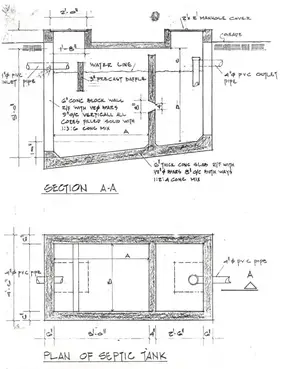 2'-0"
2'x 2' MANHOLE COVER
GRADE
1'-8"
WATER LINE
3" PRECAST BAFFLE
4"φ PVC
INLET
PIPE
4"φ PVC OUTLET
PIPE
6" CONC BLOCK WALL
R/F WITH
BARS
VERTICALL ALL
CORES FILLED SOLID WITH
1:3:6 CONC MIX
6" THICK CONC SLAB R/F WITH
BARS 8" O/C BOTH WAYS
1:2:4 CONC MIX
SECTION A-A
4"φ PVC PIPE
4"φ PVC PIPE
A
A
6"
5'-0"
4"
2'-6"
6"
PLAN OF SEPTIC TANK